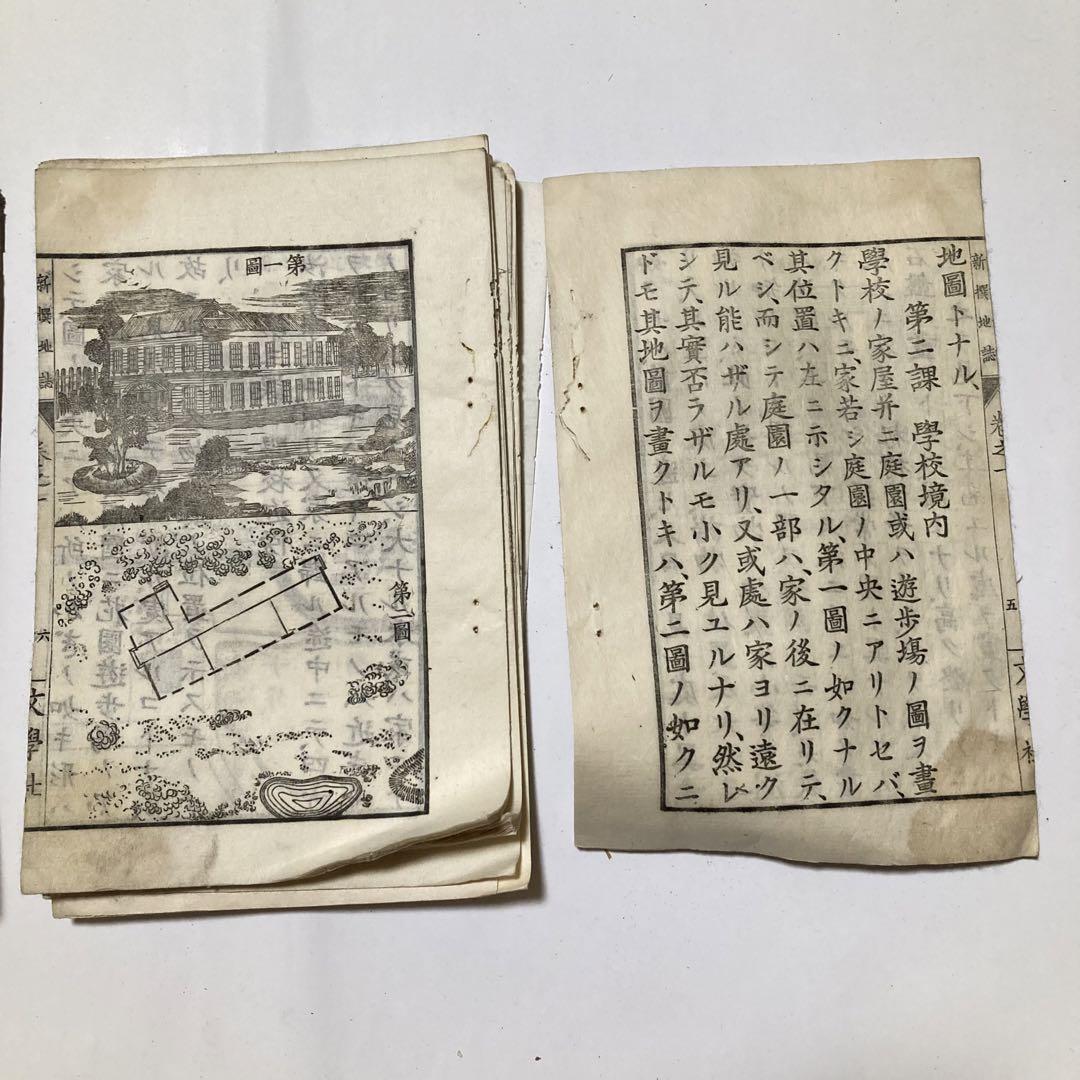 地圖トナル、
第二課　學校境内
學校ノ家屋并ニ庭園或ハ遊歩塲ノ圖ヲ畫
クトキニ、家若シ庭園ノ中央ニアリトセバ、
其位置ハ左ニホシタル、第一圖ノ如クナル
ベシ、而シテ庭園ノ一部ハ、家ノ後ニ在リテ、
見ル能ハザル處アリ、又或處ハ家ヨリ遠ク
シテ、其實否ラザルモ小ク見ユルナリ、然レ
ドモ其地圖ヲ畫クトキハ、第二圖ノ如クニ
新撰地誌
卷之一
五
文學社
第一圖
第二圖
新撰地誌
六
文學社